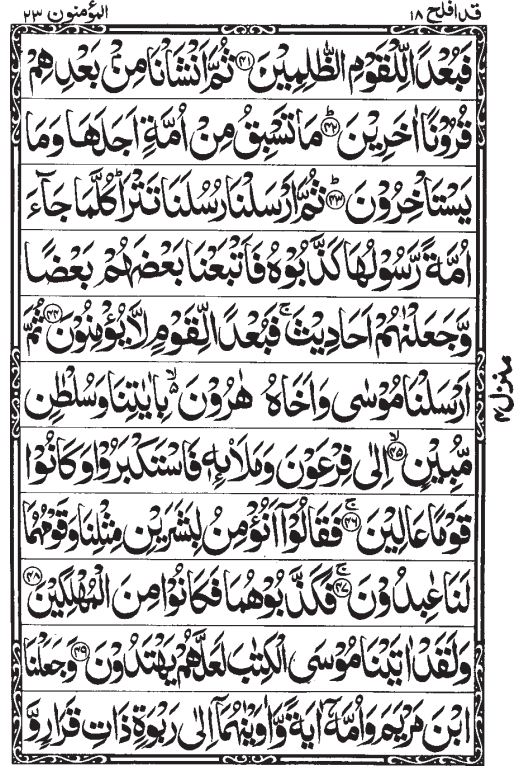 قد افلح ١٨
المؤمنون ٢٣
فَبُعْدًا لِّلْقَوْمِ الظّٰلِمِيْنَ ﴿۴۱﴾ ثُمَّ اَنْشَاْنَا مِنْۢ بَعْدِهِمْ
قُرُوْنًا اٰخَرِيْنَ ؕ﴿۴۲﴾ مَا تَسْبِقُ مِنْ اُمَّةٍ اَجَلَهَا وَمَا
يَسْتَاْخِرُوْنَ ؕ﴿۴۳﴾ ثُمَّ اَرْسَلْنَا رُسُلَنَا تَتْرَا ؕ كُلَّمَا جَآءَ
اُمَّةً رَّسُوْلُهَا كَذَّبُوْهُ فَاَتْبَعْنَا بَعْضَهُمْ بَعْضًا
وَّجَعَلْنٰهُمْ اَحَادِيْثَ ۚ فَبُعْدًا لِّقَوْمٍ لَّا يُؤْمِنُوْنَ ﴿۴۴﴾ ثُمَّ
اَرْسَلْنَا مُوْسٰى وَاَخَاهُ هٰرُوْنَ ۙ۬ بِاٰيٰتِنَا وَسُلْطٰنٍ
مُّبِيْنٍ ۙ﴿۴۵﴾ اِلٰى فِرْعَوْنَ وَمَلَا۟ئِهٖ فَاسْتَكْبَرُوْا وَكَانُوْا
قَوْمًا عَالِيْنَ ۚ﴿۴۶﴾ فَقَالُوْۤا اَنُؤْمِنُ لِبَشَرَيْنِ مِثْلِنَا وَقَوْمُهُمَا
لَنَا عٰبِدُوْنَ ۚ﴿۴۷﴾ فَكَذَّبُوْهُمَا فَكَانُوْا مِنَ الْمُهْلَكِيْنَ ﴿۴۸﴾
وَلَقَدْ اٰتَيْنَا مُوْسَى الْكِتٰبَ لَعَلَّهُمْ يَهْتَدُوْنَ ﴿۴۹﴾ وَجَعَلْنَا
ابْنَ مَرْيَمَ وَاُمَّهٗۤ اٰيَةً وَّاٰوَيْنٰهُمَاۤ اِلٰى رَبْوَةٍ ذَاتِ قَرَارٍ وَّ
منزل ۴